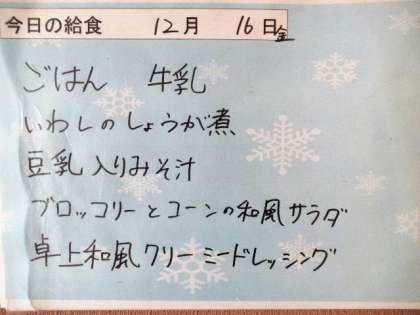 今日の給食 12月 16日金
ごはん 牛乳
いわしのしょうが煮
豆乳入りみそ汁
ブロッコリーとコーンの和風サラダ
卓上和風クリーミードレッシング